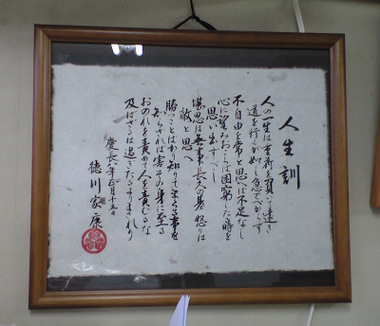 人生訓
人の一生は重荷を負いて遠き
道を行くが如し急ぐべからず
不自由を常と思へば不足なし
心に望みおこらば困窮した時を
思い出すべし
堪忍は無事長久の基怒りは
敵と思へ
勝つことばかり知りて負くる事を
知らざれば害その身に至る
おのれを責めて人を責むるな
及ばざるは過ぎたるよりまされり
慶長八年正月十五日
徳川家康